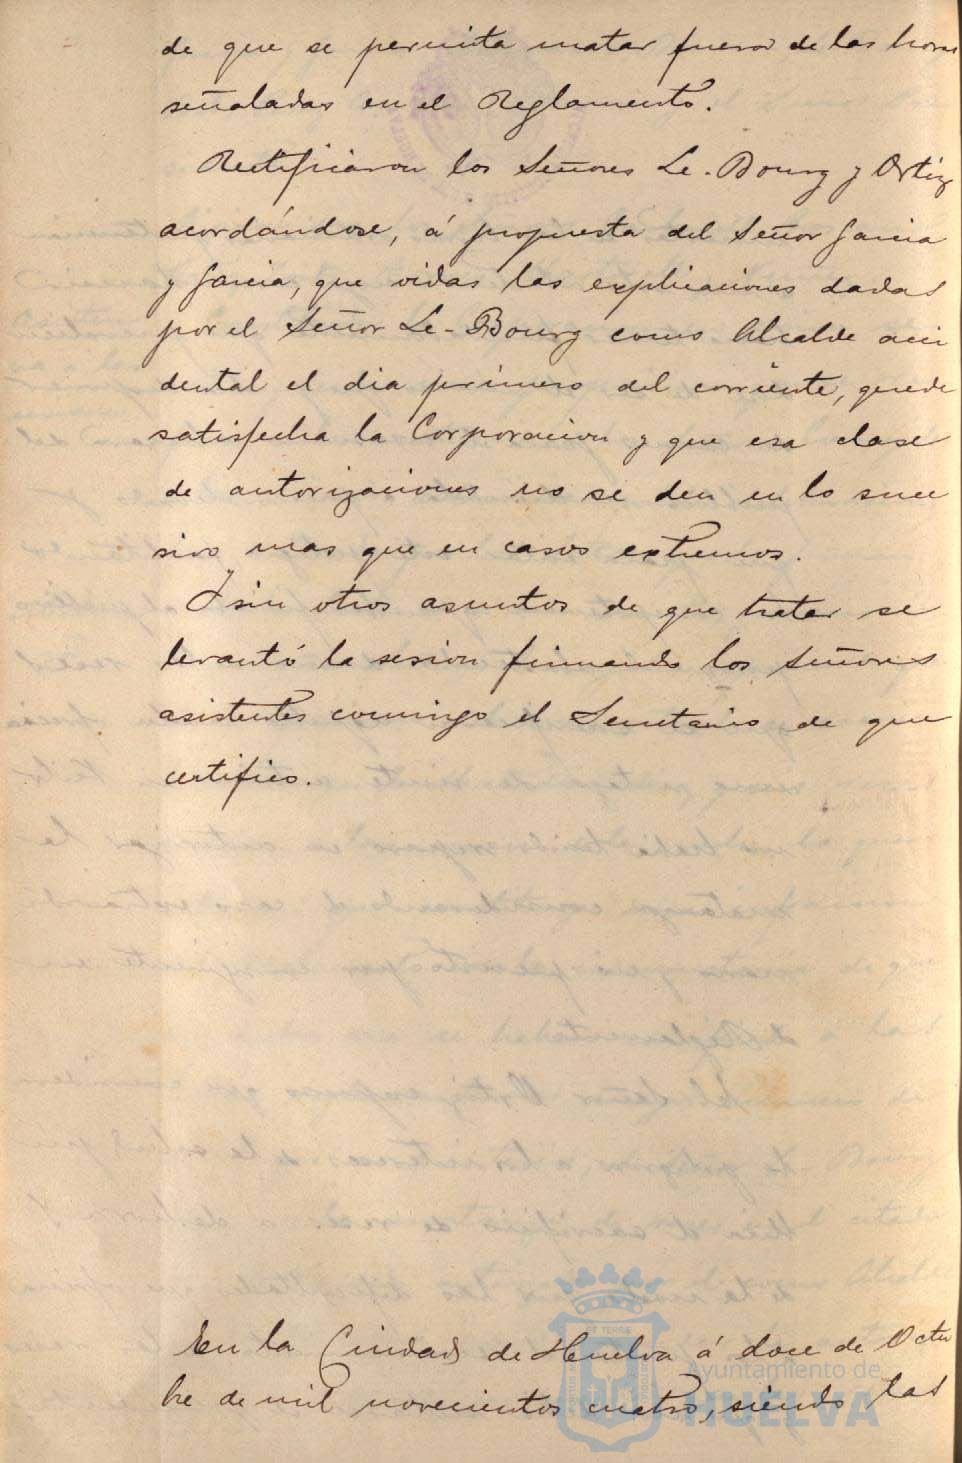 de que se permita matar fuera de las horas
señaladas en el Reglamento.
Rectificaron los Señores Le-Bourg y Ortiz
acordándose, á propuesta del Señor Garcia
y Garcia, que oidas las explicaciones dadas
por el Señor Le-Bourg como Alcalde acci
dental el dia primero del corriente, quede
satisfecha la Corporacion y que esa clase
de autorizaciones no se den en lo suce
sivo mas que en casos extremos.
Y sin otros asuntos de que tratar se
levantó la sesion firmando los Señores
asistentes conmigo el Secretario de que
certifico.
En la Ciudad de Huelva á doce de Octu
bre de mil novecientos cuatro, siendo las
Ayuntamiento de
HUELVA